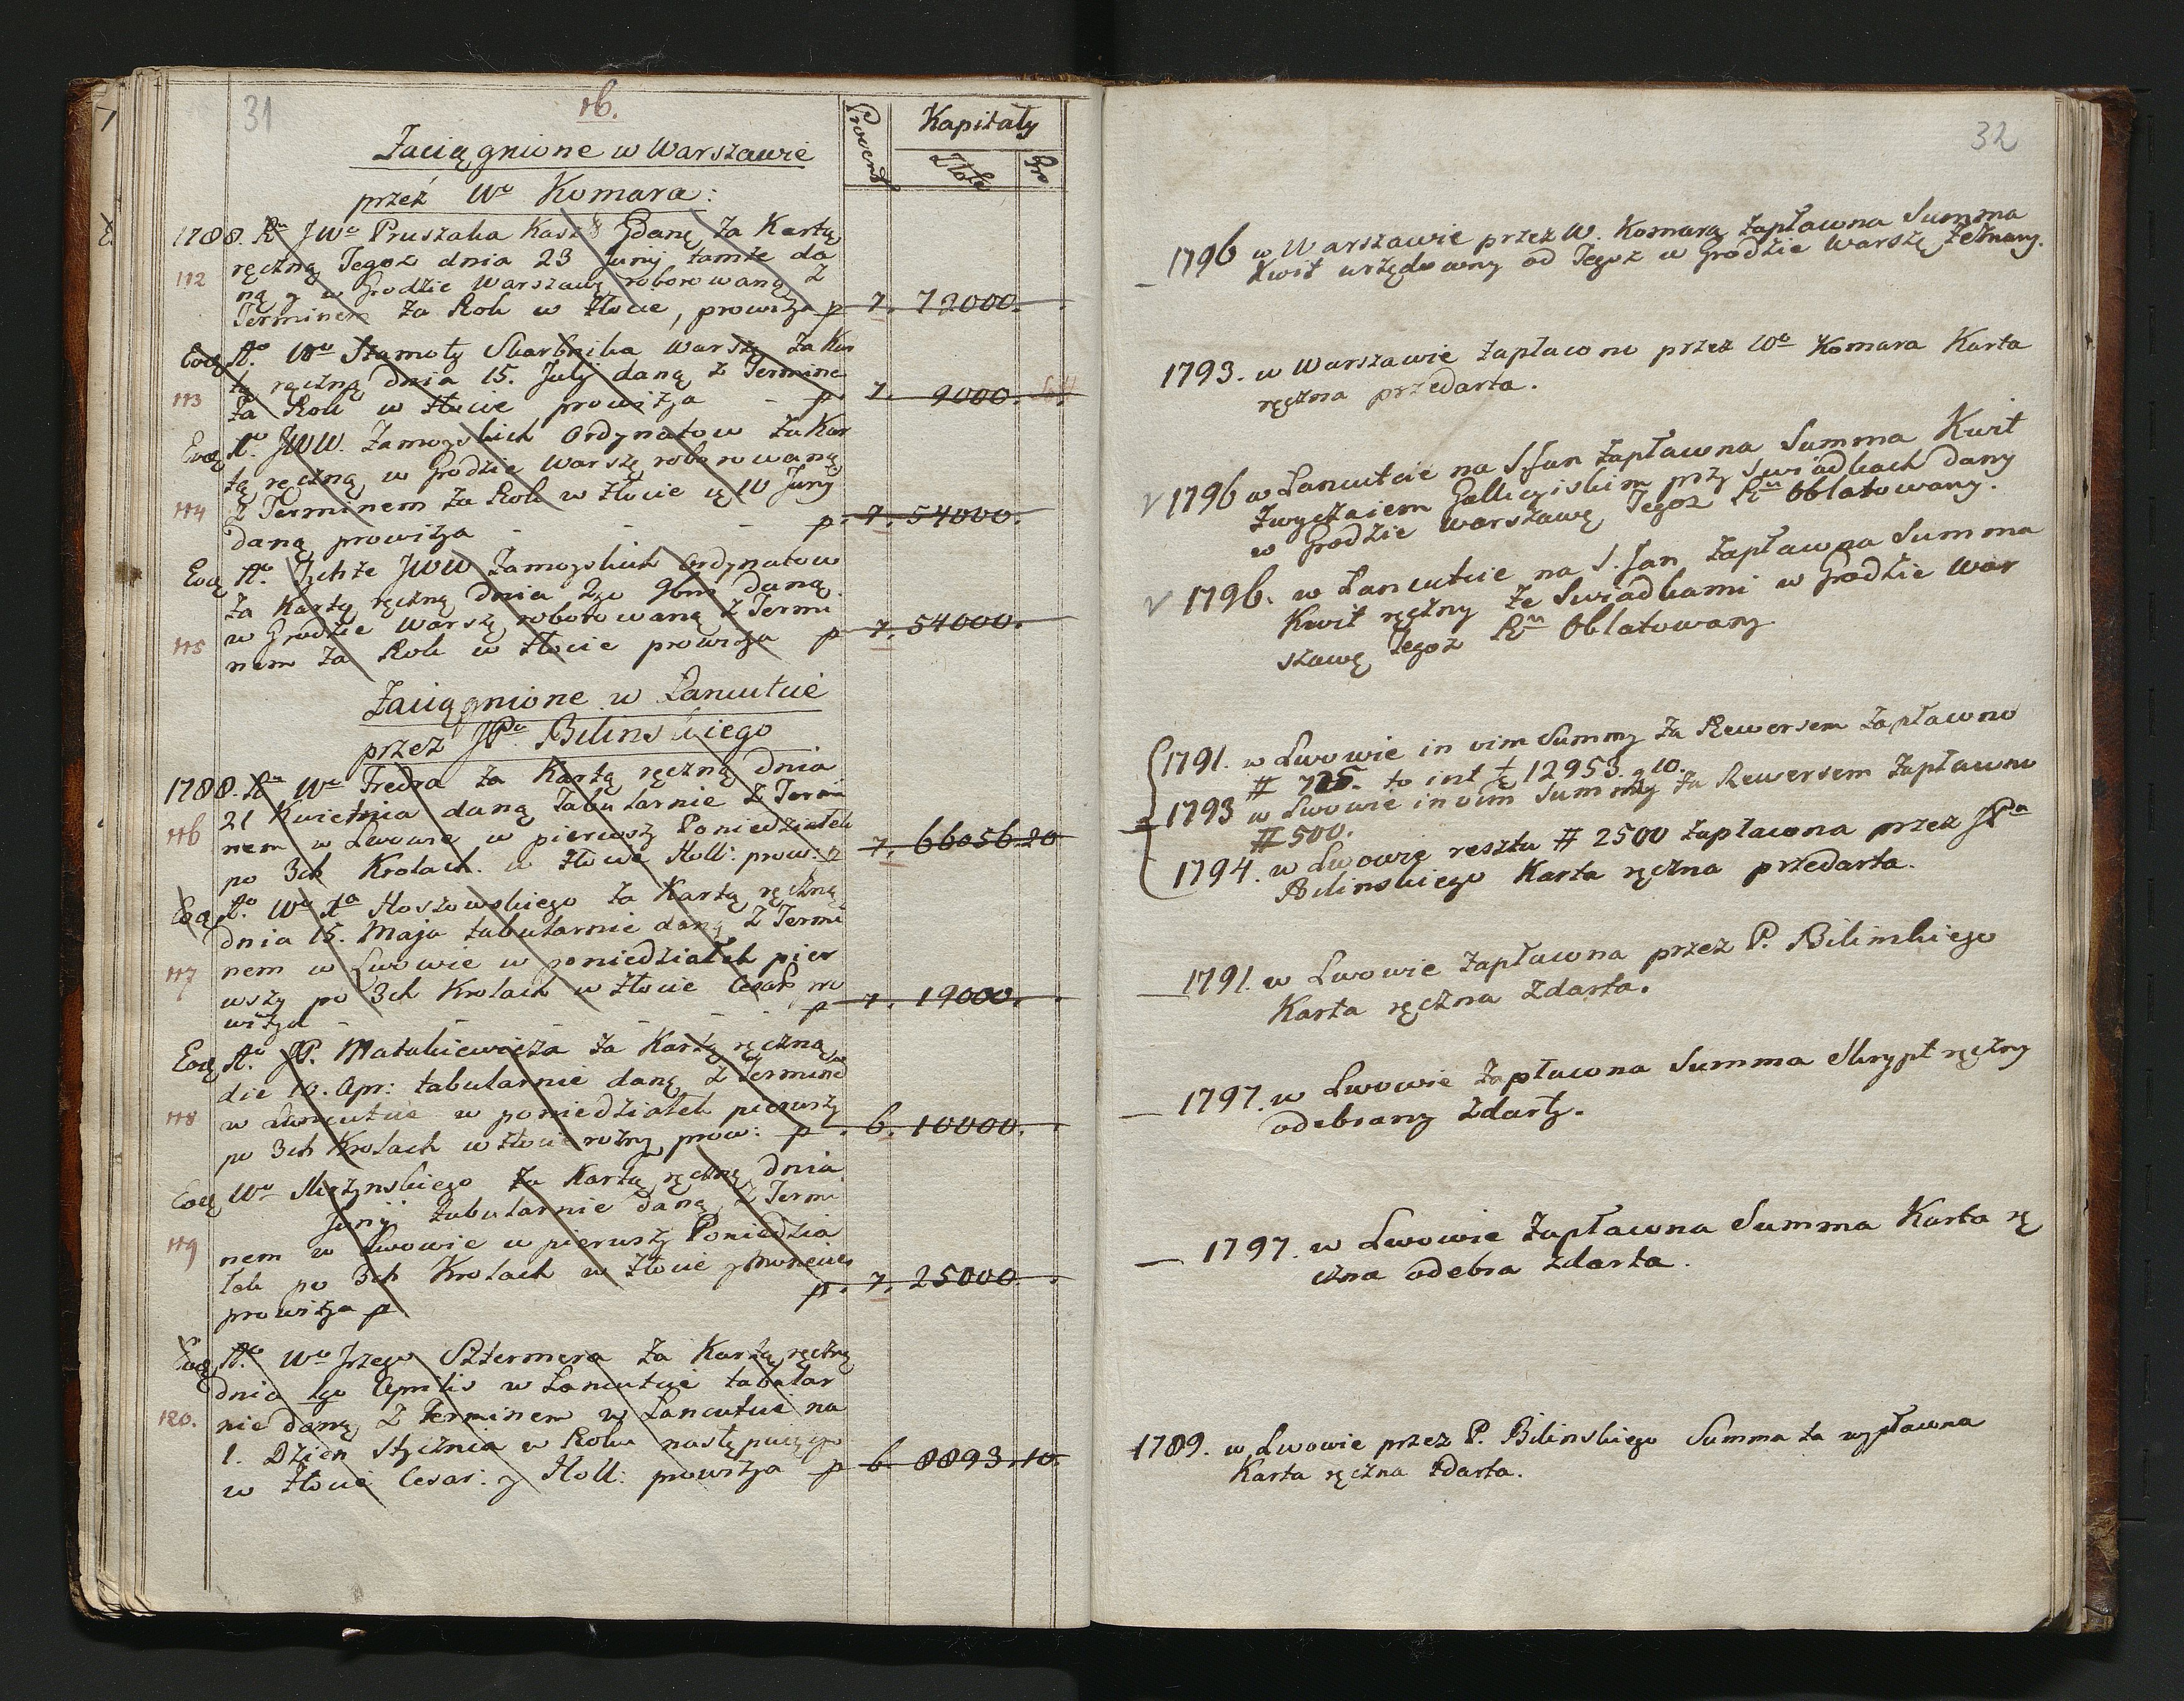 31
16.
Zaciągnione w Warszawie
przez Wo Komara:
Procent
Kapitały
Złote
Gro
1788. Ru JWo Pruszaka Kasz: Gdanę za Kartą
ręczną Tegoz dnia 23 Junij tamze da
112
ną y w Grodzie Warszawę roborowaną z
Terminem za Rok w złocie, prowizya p 7. 72000.
Eoq Ao. Wo Szamoty Skarbnika Warszę za Kar
tą ręczną dnia 15. July daną z Termine
113
za Rok w złocie prowizya - p. 7. 9000.
Eoq Ao. JWW. Zamoyskich Ordynatow za Kar
tą ręczną w Grodzie Warszę roborowaną
114
z Terminem za Rok w złocie 10 Juny
daną prowizya - - - p. 7. 54000.
Eoq Ao. Tychże JWW Zamoyskich Ordynatow
za Kartą ręczną dnia 2go 9bris daną
w Grodzie Warszę roborowaną z Termi
115
nem za Rok w złocie prowizya p 7. 54000.
Zaciągnione w Łancutcie
przez JPa Bilinskiego
1788. Ru Wo Fredra za Kartą ręczną dnia
21 Kwietnia daną Tabularnie z Termi
116
nem w Lwowie w pierwszy Poniedziałek
po 3ch Krolach. w złocie Holl: prow: p 7. 66056 20
Eoq Ao. Wo Xa Hoszowskiego za Kartą ręczną
dnia 15. Maja tabularnie daną z Termi
117
nem w Lwowie w poniedziałek pier
wszy po 3ch Krolach w złocie Cesar: pro
wizya - - - - - - p 7. 19000.
Eoq Ao. JP. Matakiewicza za Kartą ręczną
die 10. Apr: tabularnie daną z Termine
118
w Łancutcie w poniedziałek pierwszy
po 3ch Krolach w złocie rożny prow: p. 6. 10000.
Eoq Wo Skrzynskiego za Kartą ręczną dnia
Junij tabularnie daną z Termi
119
nem w Lwowie w pierwszy Poniedzia
łek po 3ch Krolach w złocie y monecie
prowizya p p. 7. 25000.
Eoq Ao. Wo Jrzego Sztermera za Kartą ręczną
dnia 1go Aprilis w Łancutcie tabular
120.
nie daną z Terminem w Łancutcie na
1. Dzien Stycznia w Roku następuiącym
w złocie Cesar: y Holl: prowizya p 6. 8893. 10.
32
1796 w Warszawie przez W. Komara zapłacona Summa
Kwit urzędowny od Tegoz w Grodzie Warszę zeznany.
1793. w Warszawie zapłacono przez Wo Komara Karta
ręczna przedarta.
√ 1796 w Łancutcie na S. Jan zapłacona Summa Kwit
zwyczaiem Galicyiskim przy Swiadkach dany
w Grodzie Warszawę Tegoz Ru Oblatowany.
√ 1796. w Łancutcie na S. Jan zapłacona Summa
Kwit ręczny ze Swiadkami w Grodzie War
szawę Tegoz Ru Oblatowany.
1791. w Lwowie in vim Summy za Rewersem zapłacono
# 725. to iest 12953. g 10.
1793 w Lwowie in vim Summy za Rewersem zapłacono
# 500.
1794. w Lwowie reszta # 2500 zapłacona przez JPa
Bilinskiego Karta ręczna przedarta.
1791. w Lwowie zapłacona przez P. Bilinskiego
Karta ręczna zdarta.
1797. w Lwowie zapłacona Summa Skrypt ręczny
odebrany zdarty.
1797. w Lwowie zapłacona Summa Karta rę
czna odebra zdarta.
1789. w Lwowie przez P. Bilinskiego Summa ta wypłacona
Karta ręczna zdarta.